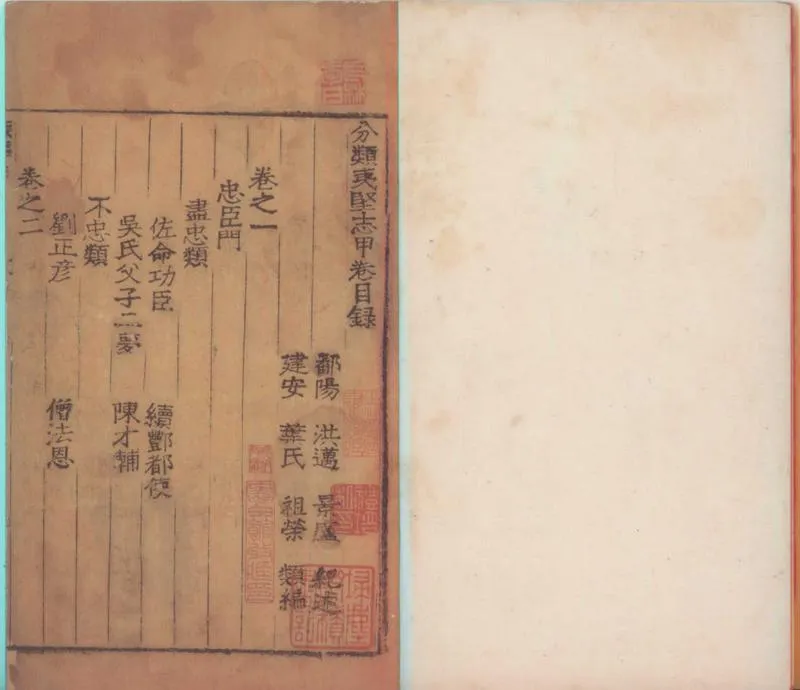 分類夷堅志甲卷目録
鄱陽 洪邁 景盧 紀述
建安 葉氏 祖榮 類編
卷之一
忠臣門
盡忠類
佐命功臣 續酆都使
吳氏父子二夢 陳才輔
不忠類
劉正彥 僧法恩
卷之二